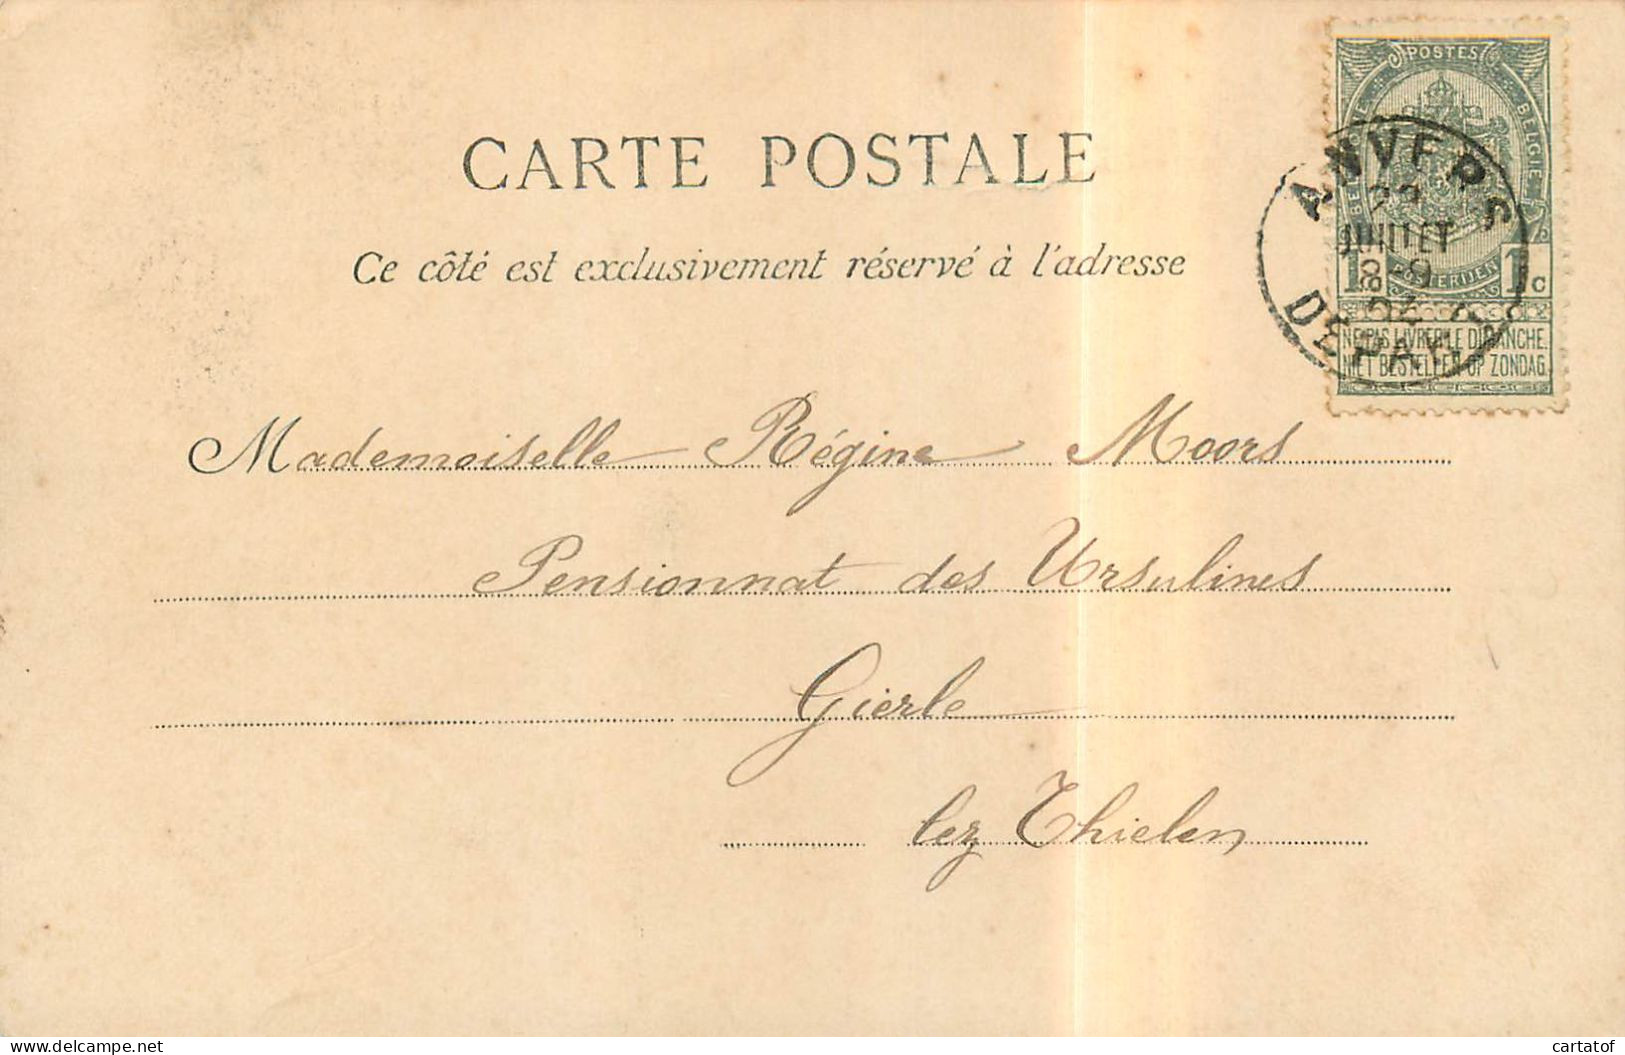 CARTE POSTALE
Ce côté est exclusivement réservé à l'adresse
POSTES
BELGIE
POSTERIJEN
1 1c
NE PAS LIVRER LE DIMANCHE.
NIET BESTELLEN OP ZONDAG.
ANVERS
JUILLET
DEPART
Mademoiselle Régine Moors
Pensionnat des Ursulines
Gierle
lez Thielen
cartatof